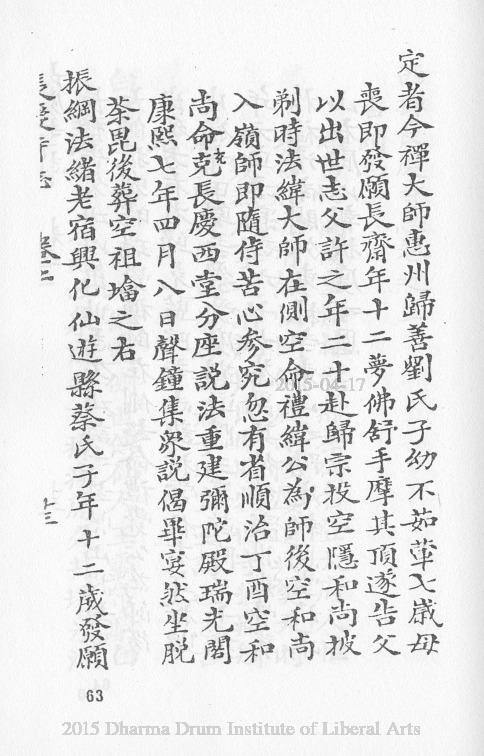 定者今禪大師惠州歸善劉氏子幼不茹葷七歲母
喪即發願長齋年十二夢佛舒手摩其頂遂告父
以出世志父許之年二十赴歸宗投空隱和尚披
剃時法緯大師在側空命禮緯公為師後空和尚
入嶺師即隨侍苦心參究忽有省順治丁酉空和
尚命克充長慶西堂分座説法重建彌陀殿瑞光閣
康熙七年四月八日聲鐘集眾説偈畢寔然坐脱
荼毘後葬空祖墖之右
振綱法緒老宿興化仙遊縣蔡氏子年十二歲發願
長慶寺志 卷二 十三
63
2015-04-17
2015 Dharma Drum Institute of Liberal Arts